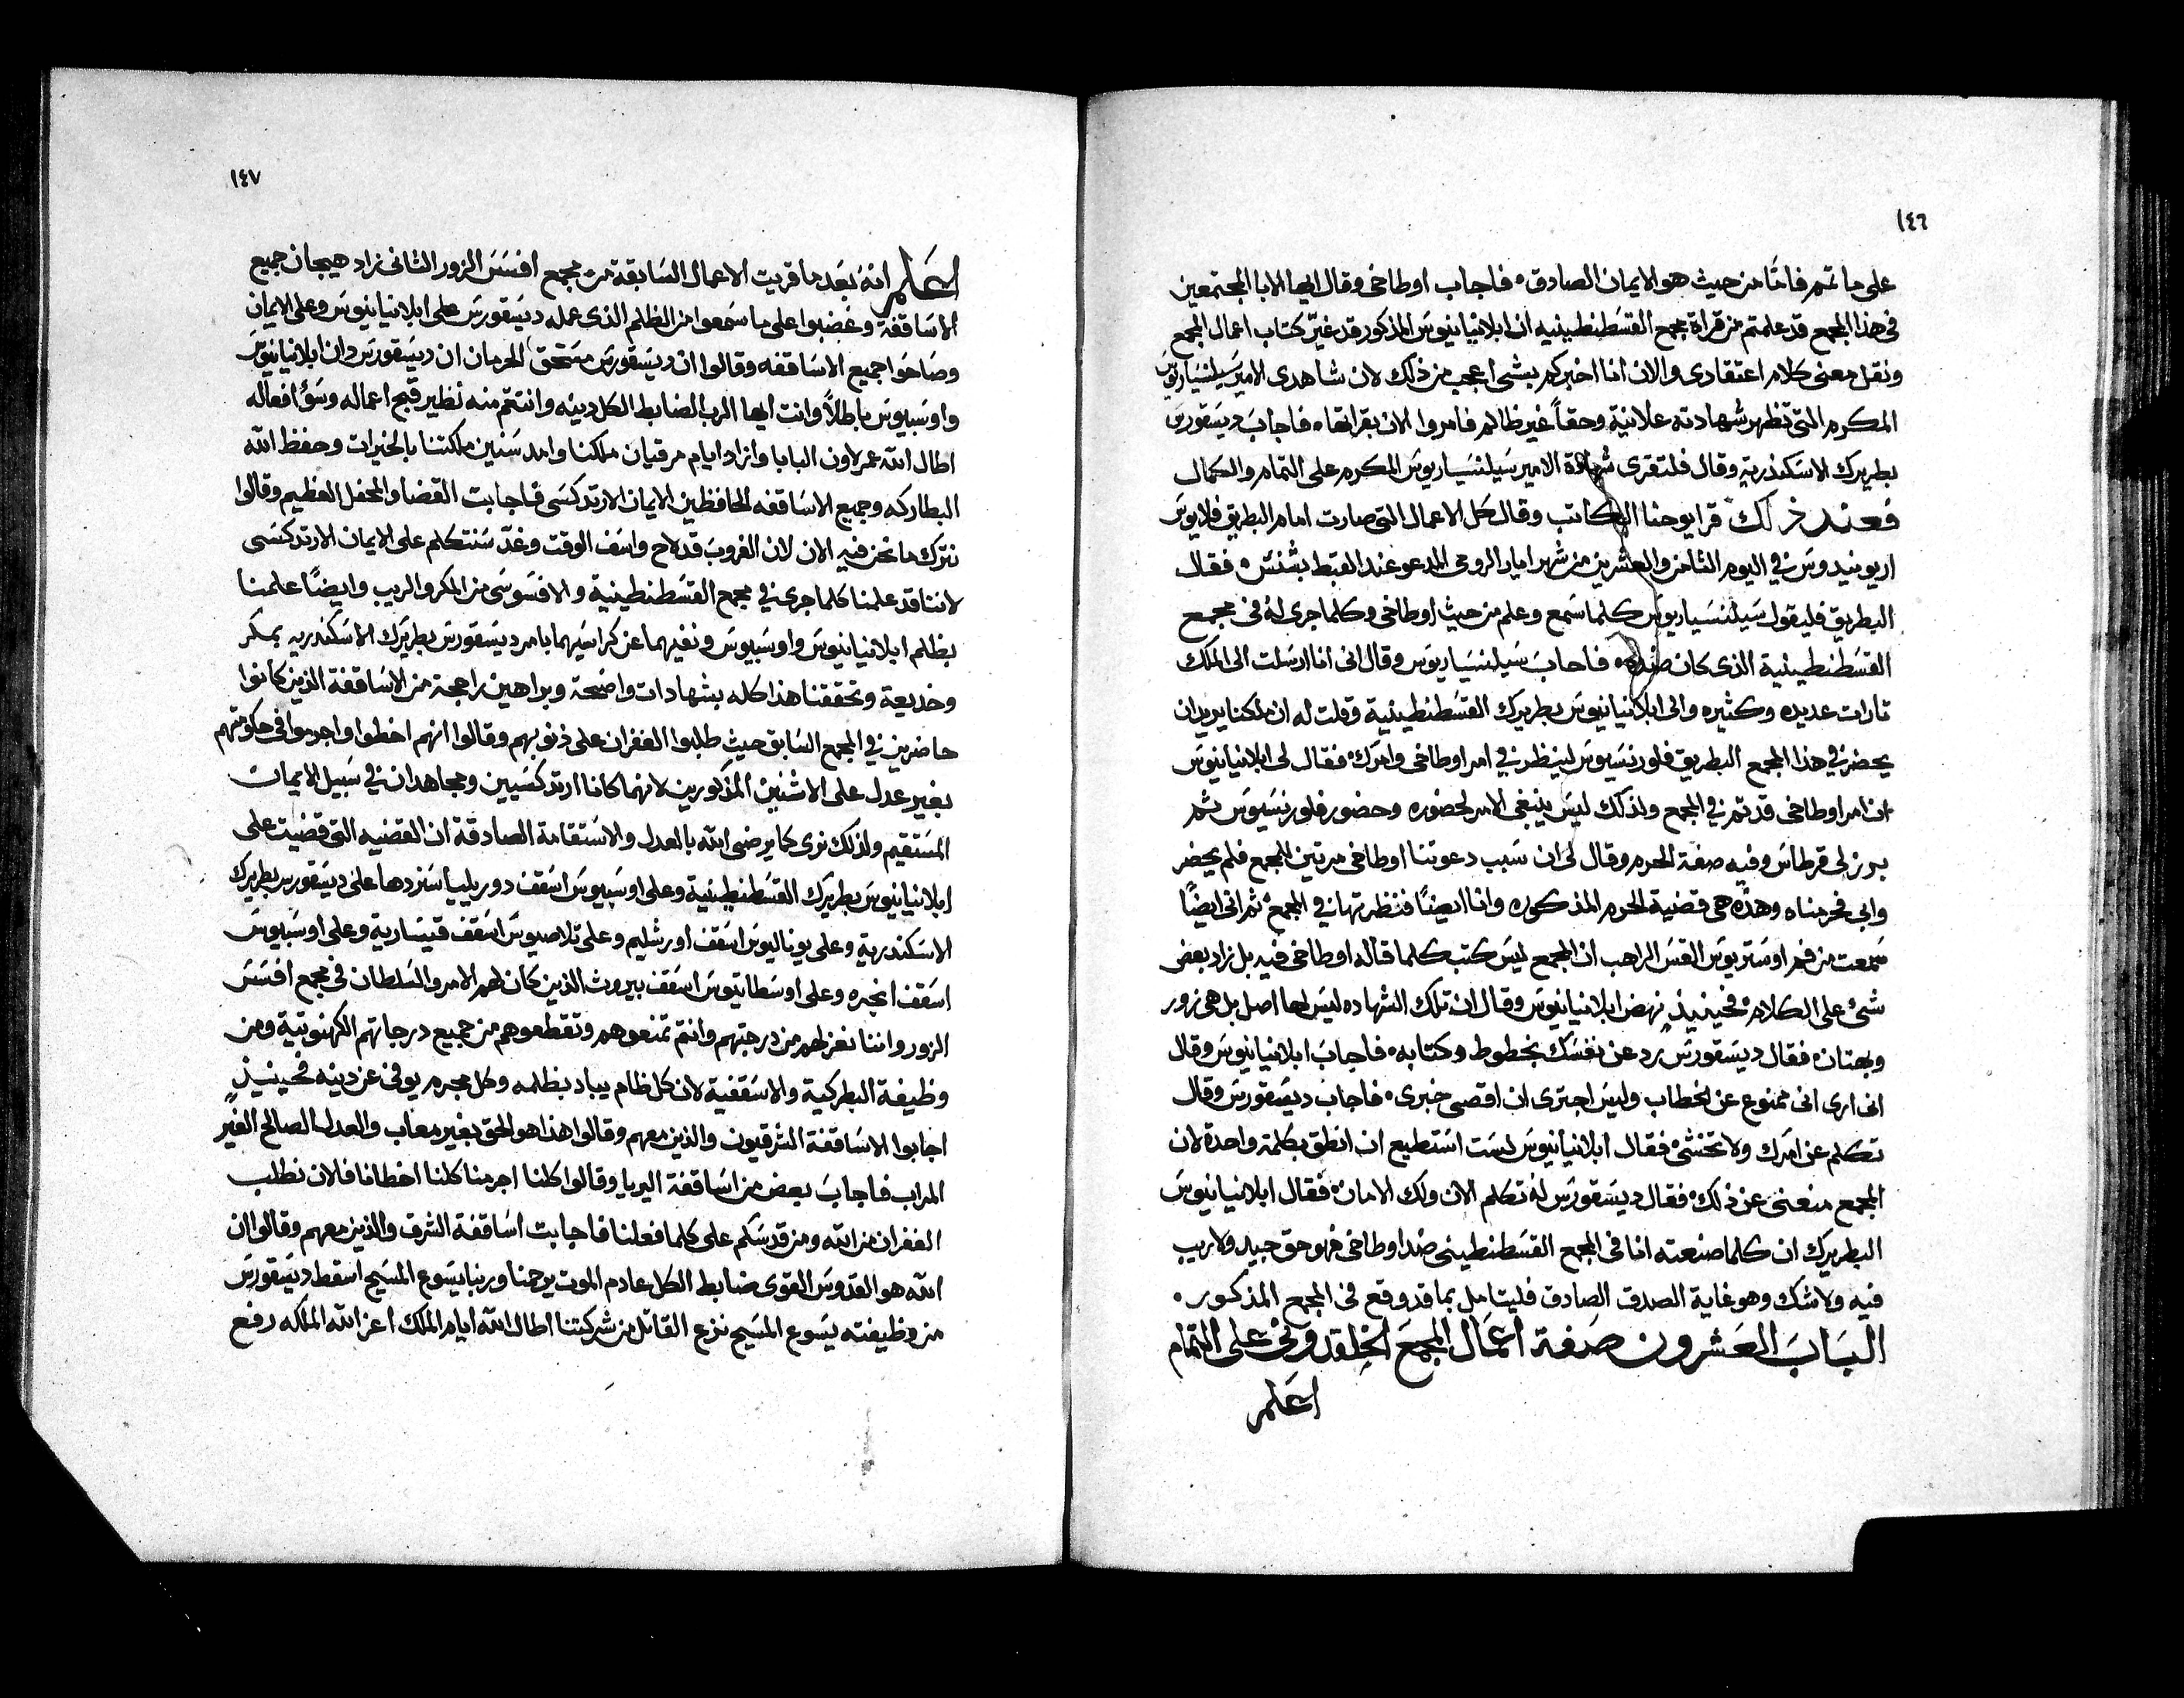 ١٤٦
على ما تم فامّا من حيث هو الايمان الصادق ٠ فاجاب اوطاخى وقال ايها الابا المجتمعين
فى هذا المجمع قد علمتم من قراة مجمع القسطنطينيه ان ابلانيانيوس المذكور قد غيّر كتاب اعمال المجمع
ونقل معنى كلام اعتقادى والان انا اخبركم بشى اعجب من ذلك لان شاهدى الامير سيلنسياريوس
المكرم التى تظهر شهادته علانية وحقاً غير ظالم فامروا الان بقرائتها ٠ فاجاب ديسقورس
بطريرك الاسكندرية وقال فلتقرى شهادة الامير سيلنسياريوس المكرم على التمام والكمال
فعند ذلك قرا يوحنا الكاتب وقال كل الاعمال التى صارت امام البطريق فلايوس
اريونيدوس فى اليوم الثامن والعشرين من شهر ايار الرومى المدعو عند القبط بشنس ٠ فقال
البطريق فليقول سيلنسياريوس كلما سمع وعلم من حيث اوطاخى وكلما جرى له فى مجمع
القسطنطينية الذى كان ضده ٠ فاجاب سيلنسياريوس وقال انى انا ارسلت الى الملك
تارات عديده وكثيره والى ابلانيانيوس بطريرك القسطنطينية وقلت له ان ملكنا يريد ان
يحضر فى هذا المجمع البطريق فلورنسيوس لينظر فى امر اوطاخى وامرك ٠ فقال لى ابلانيانيوس
ان امر اوطاخى قد تم فى المجمع ولذلك ليس ينبغى الامر لحضوره وحضور فلورنسيوس ثم
برز لى قرطاس وفيه صفة الحرم وقال لى ان سبب دعوتنا اوطاخى مرتين للمجمع فلم يحضر
وابى فحرمناه وهذه هى قضية الحرم المذكوره وانا ايضًا فنظرتها فى المجمع ثم انى ايضًا
سمعت من فم اوستريوس القس الراهب ان المجمع ليس كتب كلما قاله اوطاخى فيه بل زاد بعض
شئ على الكلام ٠ فحينيذٍ نهض ابلانيانيوس وقال ان تلك الشهاده ليس لها اصل بل هى زور
وبهتان ٠ فقال ديسقورس رد عن نفسك بخطوط وكتابه ٠ فاجاب ابلانيانيوس وقال
انى ارى انى ممنوع عن الخطاب وليس اجترى ان اقصى خبرى ٠ فاجاب ديسقورس وقال
تكلم عن امرك ولا تخشى ٠ فقال ابلانيانيوس لست استطيع ان انطق بكلمة واحدة لان
المجمع منعنى عن ذلك ٠ فقال ديسقورس له تكلم الان ولك الامان ٠ فقال ابلانيانيوس
البطريرك ان كلما صنعته انا فى المجمع القسطنطينى ضد اوطاخى فهو حق جيد ولا ريب
فيه ولا شك وهو غاية الصدق الصادق فليتامل بما قد وقع فى المجمع المذكور ٠
الباب العشرون صفة اعمال المجمع الخلقدونى على التمام
اعلم
١٤٧
اعلم انه بعد ما قريت الاعمال السابقة من مجمع افسس الزور الثانى زاد هيجان جميع
الاساقفة وغضبوا على ما سمعوا من الظلم الذى عمله ديسقورس على ابلانيانيوس وعلى الايمان
وصاحوا جميع الاساقفه وقالوا ان ديسقورس مستحق الحرمان ان ديسقورس دان ابلانيانيوس
واوسبيوس باطلاً وانت ايها الرب الضابط الكل دينه وانتقم منه نظير قبح اعماله وسؤ افعاله
اطال الله عمر لاون البابا وازاد ايام مرقيان ملكنا وامد سنين ملكتنا بالخيرات وحفظ الله
البطاركه وجميع الاساقفه الحافظين الايمان الارتدكسى فاجابت القضا والمحفل العظيم وقالوا
نترك ما نحن فيه الان لان الغروب قد لاح واسف الوقت وغدّ سنتكلم على الايمان الارتدكسى
لاننا قد علمنا كلما جرى فى مجمع القسطنطينية والافسوسى من المكر والريب وايضًا علمنا
بظلم ابلانيانيوس واوسبيوس ونفيهما عن كراسيهما بامر ديسقورس بطريرك الاسكندريه بمكر
وخديعة وتحققنا هذا كله بشهادات واضحة وبراهين راجحة من الاساقفة الذين كانوا
حاضرين فى المجمع السابق حيث طلبوا الغفران على ذنوبهم وقالوا انهم اخطوا واجرموا فى حكومتهم
بغير عدل على الاثنين المذكورين لانهما كانا ارتدكسيين ومجاهدان فى سبيل الايمان
المستقيم ولذلك نرى كما يرضى الله بالعدل والاستقامة الصادقة ان القضيه التى قضيت على
ابلانيانيوس بطريرك القسطنطينية وعلى اوسبيوس اسقف دوريليا سنردها على ديسقورس بطريرك
الاسكندرية وعلى يوناليوس اسقف اورشليم وعلى تلاصيوس اسقف قيسارية وعلى اوسبيوس
اسقف انجره وعلى اوسطاتيوس اسقف بيروث الذين كان لهم الامر والسلطان فى مجمع افسس
الزور واننا نعزلهم من درجتهم وانتم تمنعوهم وتقطعوهم من جميع درجاتهم الكهنوتية ومن
وظيفة البطركية والاسقفية لان كل ظالم يباد بظلمه وكل مجرم يوفى عن دينه فحينيذٍ
اجابوا الاساقفة الشرقيون والذين معهم وقالوا هذا هو الحق بغير معاب والعدل الصالح الغير
المراب فاجاب بعض من اساقفة اليريا وقالوا كلنا اجرمنا كلنا اخطانا فالان نطلب
الغفران من الله ومن قدسكم على كلما فعلنا فاجابت اساقفة الشرق والذين معهم وقالوا ان
الله هو القدوس القوى ضابط الكل عادم الموت يرحمنا وربنا يسوع المسيح اسقط ديسقورس
من وظيفته يسوع المسيح نزع القاتل من شركتنا اطال الله ايام الملك اعز الله الملكه رفع